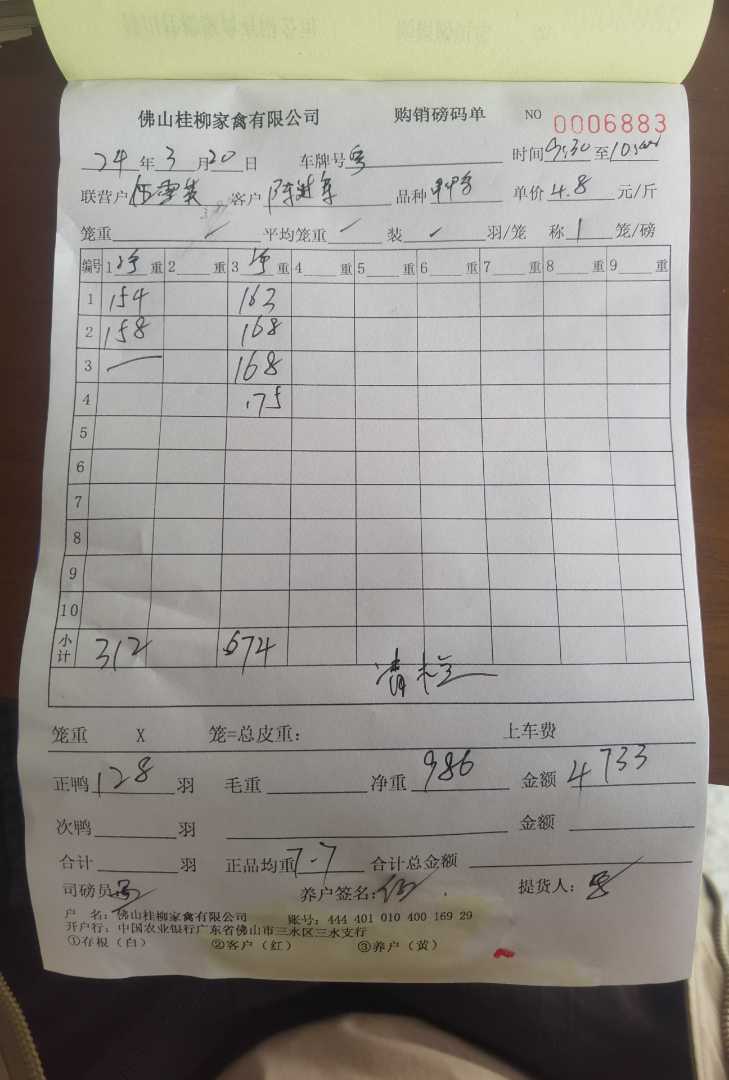 佛山桂柳家禽有限公司 购销磅码单 NO 0006883
24年3月20日 车牌号 时间9:30至
联营户 客户 品种 单价4.8元/斤
笼重 平均笼重 装 羽/笼 称1笼/磅
编号 1净重 2 重 3净重 4 重 5 重 6 重 7 重 8 重 9 重
1 154 163
2 158 168
3 — 168
4 175
5
6
7
8
9
10
小计 312 674
清栏
笼重 X 笼=总皮重： 上车费
正鸭128羽 毛重 净重986 金额4733
次鸭 羽 金额
合计 羽 正品均重7.7 合计总金额
司磅员 养户签名： 提货人：
户 名：佛山桂柳家禽有限公司 账号：444 401 010 400 169 29
开户行：中国农业银行广东省佛山市三水区三水支行
①存根（白） ②客户（红） ③养户（黄）